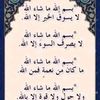 "بسم الله ما شاء الله
لا يسوق الخير إلا الله
"بسم الله ما شاء الله
لا يصرف السوء إلا الله
"بسم الله ما شاء الله
ما كان من نعمة فمن الله
"بسم الله ما شاء الله
ولا حول ولا قوة إلا بالله